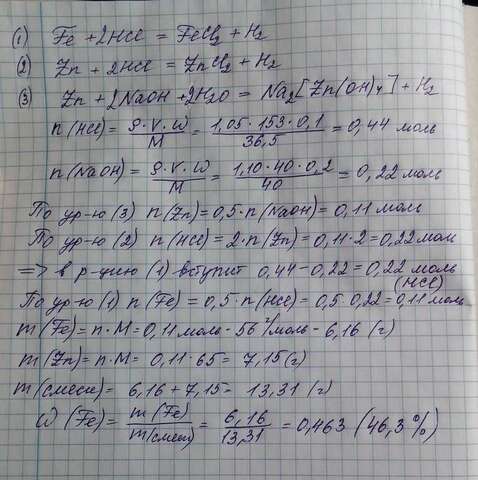 (1) Fe + 2HCl = FeCl₂ + H₂
(2) Zn + 2HCl = ZnCl₂ + H₂
(3) Zn + 2NaOH + 2H₂O = Na₂[Zn(OH)₄] + H₂
n(HCl) = ρ·V·ω/M = 1,05·153·0,1/36,5 = 0,44 моль
n(NaOH) = ρ·V·ω/M = 1,10·40·0,2/40 = 0,22 моль
По ур-ю (3) n(Zn) = 0,5·n(NaOH) = 0,11 моль
По ур-ю (2) n(HCl) = 2·n(Zn) = 0,11·2 = 0,22 моль
=> в р-цию (1) вступит 0,44 - 0,22 = 0,22 моль (HCl)
По ур-ю (1) n(Fe) = 0,5·n(HCl) = 0,5·0,22 = 0,11 моль
m(Fe) = n·M = 0,11 моль · 56 г/моль - 6,16 (г)
m(Zn) = n·M = 0,11·65 = 7,15 (г)
m(смеси) = 6,16 + 7,15 - 13,31 (г)
ω(Fe) = m(Fe)/m(смеси) = 6,16/13,31 = 0,463 (46,3%)